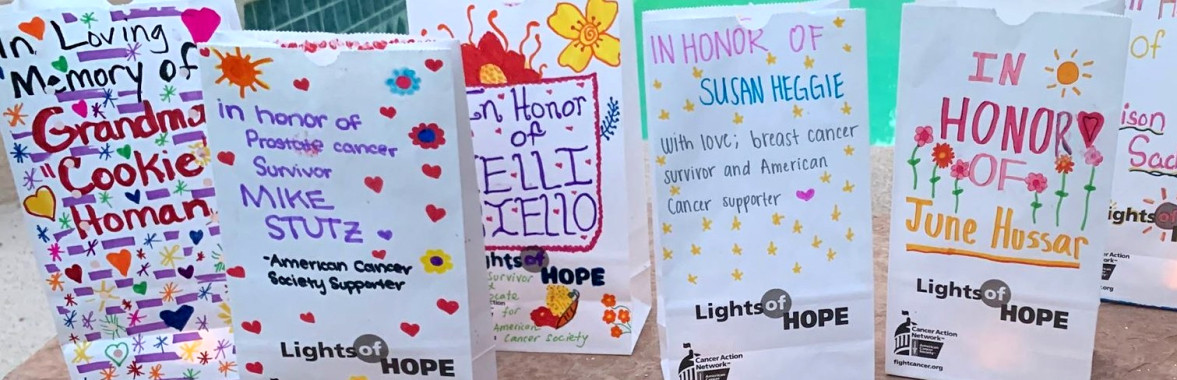 In Loving
Memory of
Grandma
"Cookie"
Homan
in honor of
Prostate cancer
Survivor
MIKE
STUTZ
-American Cancer
Society Supporter
Lights of HOPE
In Honor
of
ELLI
IELLO
ights of HOPE
Survivor
for
American
cancer society
IN HONOR OF
SUSAN HEGGIE
with love; breast cancer
survivor and American
Cancer supporter
Lights of HOPE
Cancer Action
Network
IN
HONOR
OF
June Hussar
Lights of HOPE
Cancer Action
Network
fightcancer.org
of
ison
Sac
ights of
Action
.org